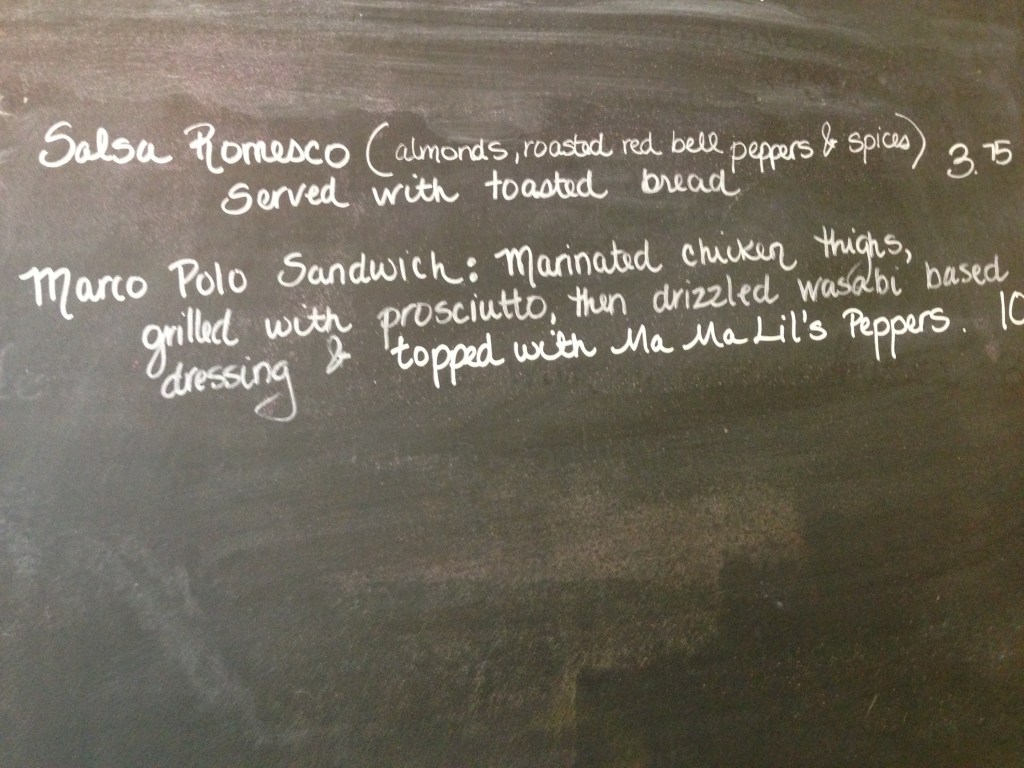 Salsa Romesco (almonds, roasted red bell peppers & spices) 3.75
Served with toasted bread
Marco Polo Sandwich: Marinated chicken thighs,
grilled with prosciutto, then drizzled wasabi based
dressing & topped with Ma Ma Lil's Peppers. 10